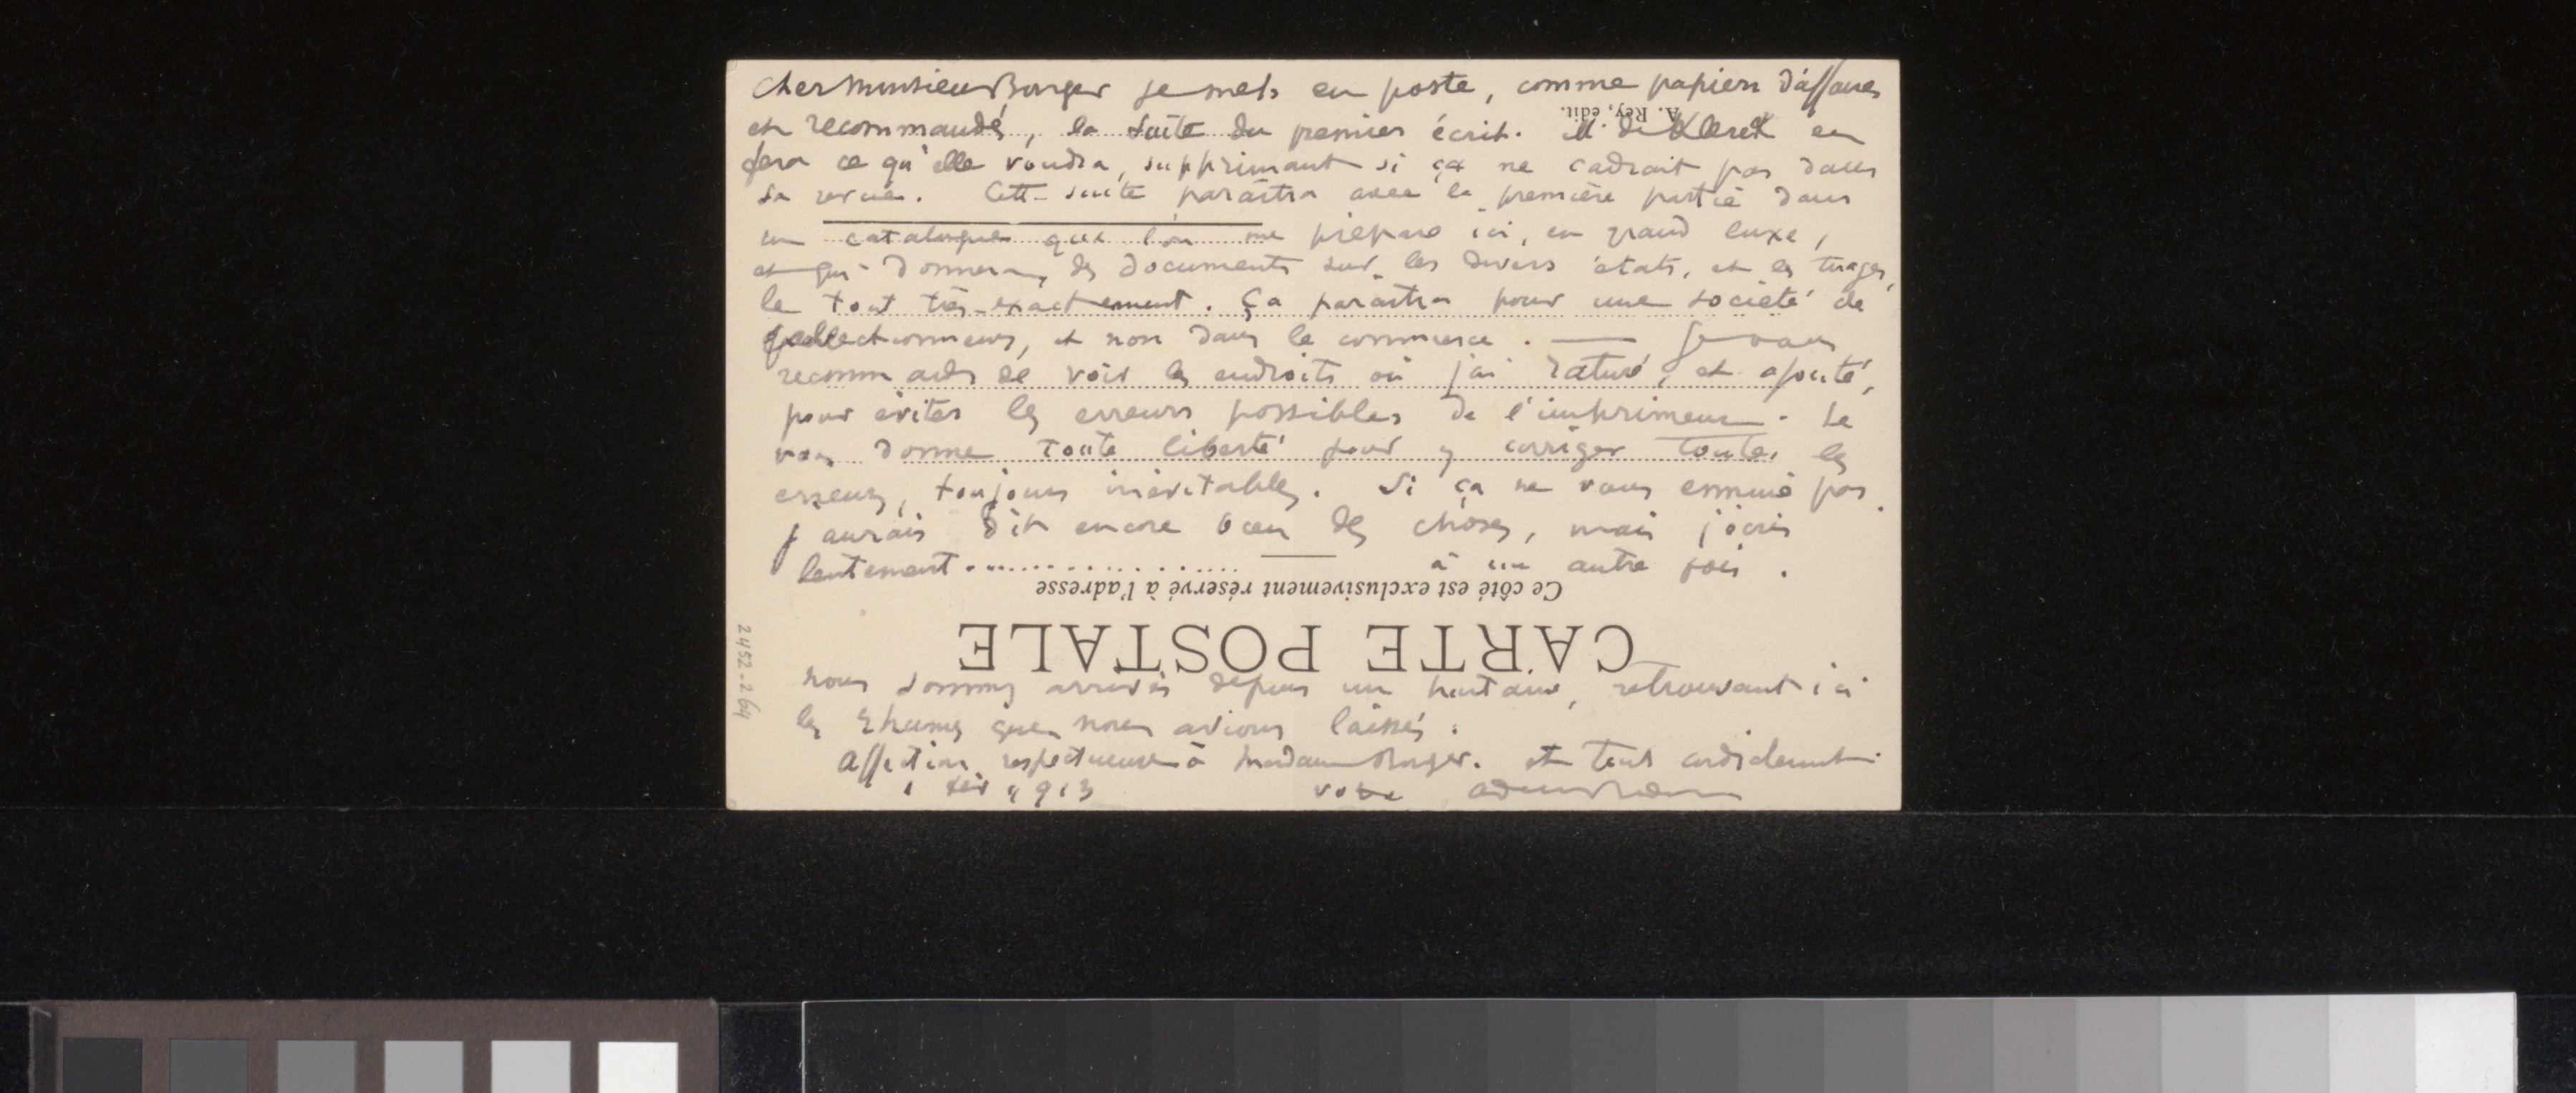 Cher Monsieur Bonger je mets en poste, comme papiers d'affaires
A. Rey, édit.
et recommandé, la suite du premier écrit. M de en
fera ce qu'elle voudra, supprimant si ça ne cadrait pas dans
sa revue. Cette suite paraîtra avec la première partie dans
un catalogue que l'on me prépare ici, en grand luxe,
et qui donnera des documents sur les divers états, et les tirages,
le tout très exactement. Ça paraîtra pour une société de
collectionneurs, et non dans le commerce. — Je vous
recommande de voir les endroits où j'ai raturé, et ajouté,
pour éviter les erreurs possibles de l'imprimeur. Je
vous donne toute liberté pour y corriger toutes les
erreurs, toujours inévitables. Si ça ne vous ennuie pas.
J'aurais dit encore bien des choses, mais j'écris
lentement .................. à une autre fois.
Ce côté est exclusivement réservé à l'adresse
CARTE POSTALE
nous sommes arrivés depuis un, retrouvant ici
les rhumes que nous avions laissés.
Affection respectueuse à Madame Bonger. et tout cordialement
1913 votre
2452-264